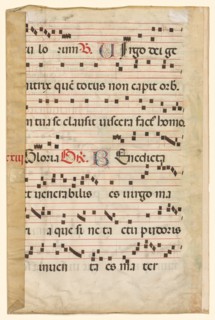 cu lo rum R. Uirgo dei ge
nitrix que totus non capit orb.
in tua se clausit uiscera fact homo
Gloria Bx. Benedicta
et uenerabilis es uirgo ma
ri a que si ne ta ctu pudoris
inuen ta es ma ter